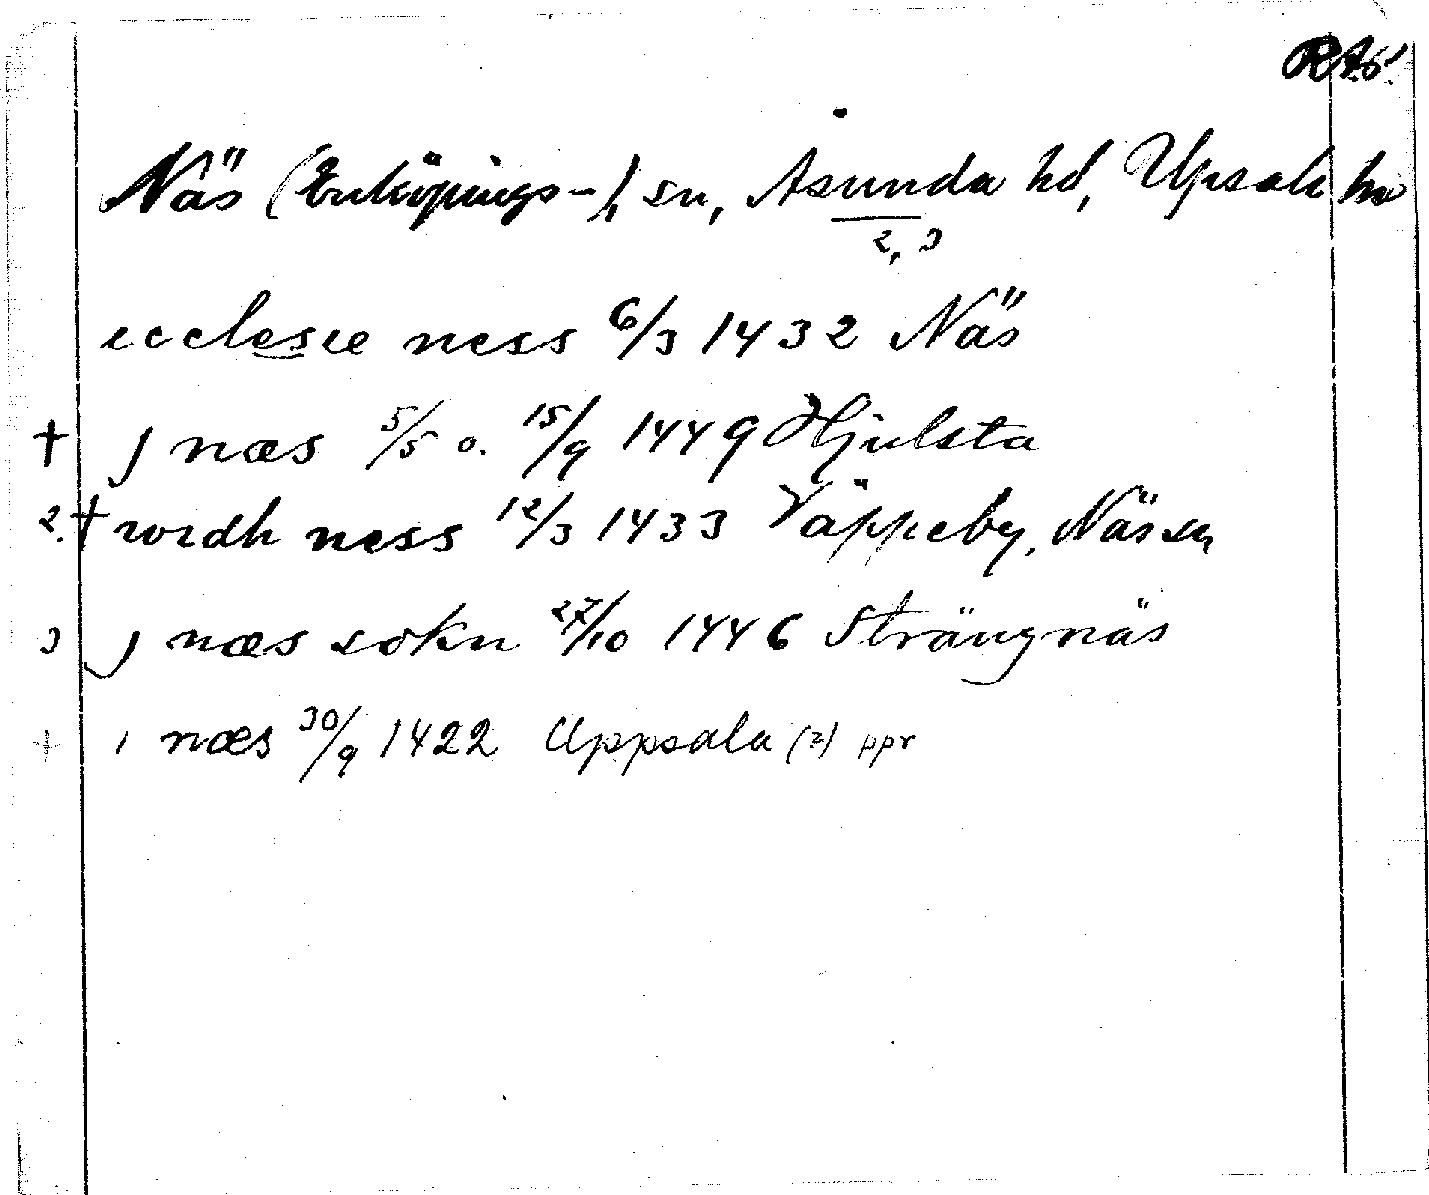 RAÖ
Näs (Enköpings-), sn, Åsunda hd, Upsala län
2, 3
ecclesie ness 6/3 1432 Näs
+ j næs 5/5 o. 15/9 1449 Hjulsta
2. + widh ness 12/3 1433 Väppeby, Näs sn
3 j næs sokn 27/10 1446 Strängnäs
+ i næs 30/9 1422 Uppsala (2) ppr